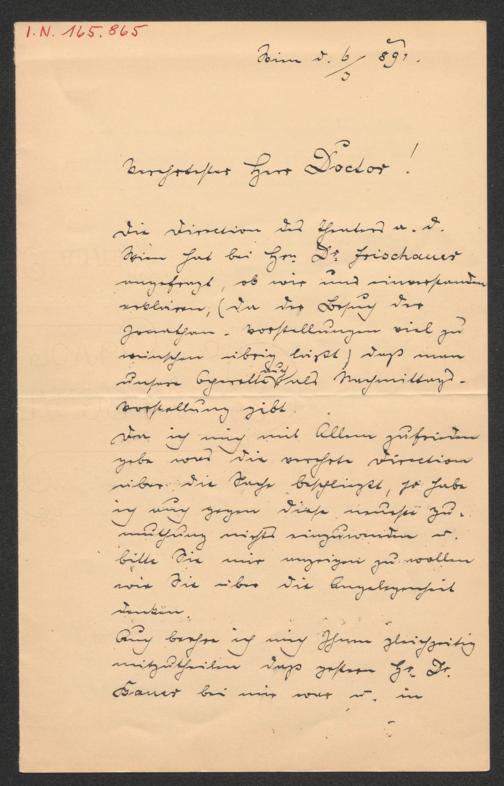 I.N. 165.865
Wien d. 6/3 891.
Verehrtester Herr Doctor!
Die Direction des Theaters a. d.
Wien hat bei Hrn. Dr. Frischauer
angefragt, ob wir uns einverstanden
erklären, (da der Besuch der
Jonathan-Vorstellungen viel zu
wünschen übrig läßt) daß man
unsere Operette auch als Nachmittags-
vorstellung gibt.
Da ich mich mit Allem zufrieden
gebe was die verehrte Direction
über die Sache beschließt, so habe
ich auch gegen diese neueste Zu-
muthung nichts einzuwenden u.
bitte Sie mir anzeigen zu wollen
wie Sie über die Angelegenheit
denken.
Auch beehre ich mich Ihnen gleichzeitig
mitzutheilen daß gestern Hr. Dr.
bei mir war u. in